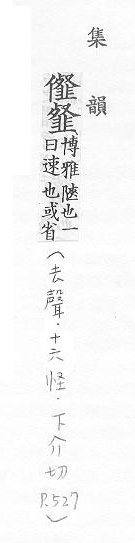 集韻
㒠韰
博雅陜也一
曰速也或省
(去聲．十六怪．下介切
P.527)